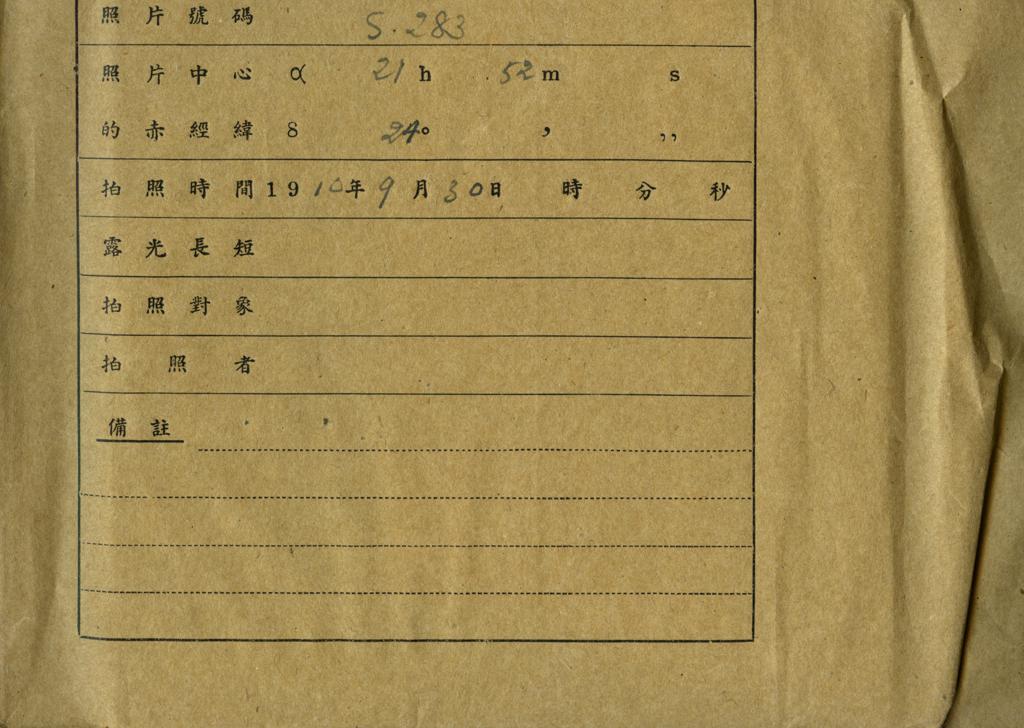 照片號碼 S.283
照片中心 α 21 h 52 m s
的赤經緯 δ 24° ′ ″
拍照時間 1910年9月30日 時 分 秒
露光長短
拍照對象
拍照者
備註